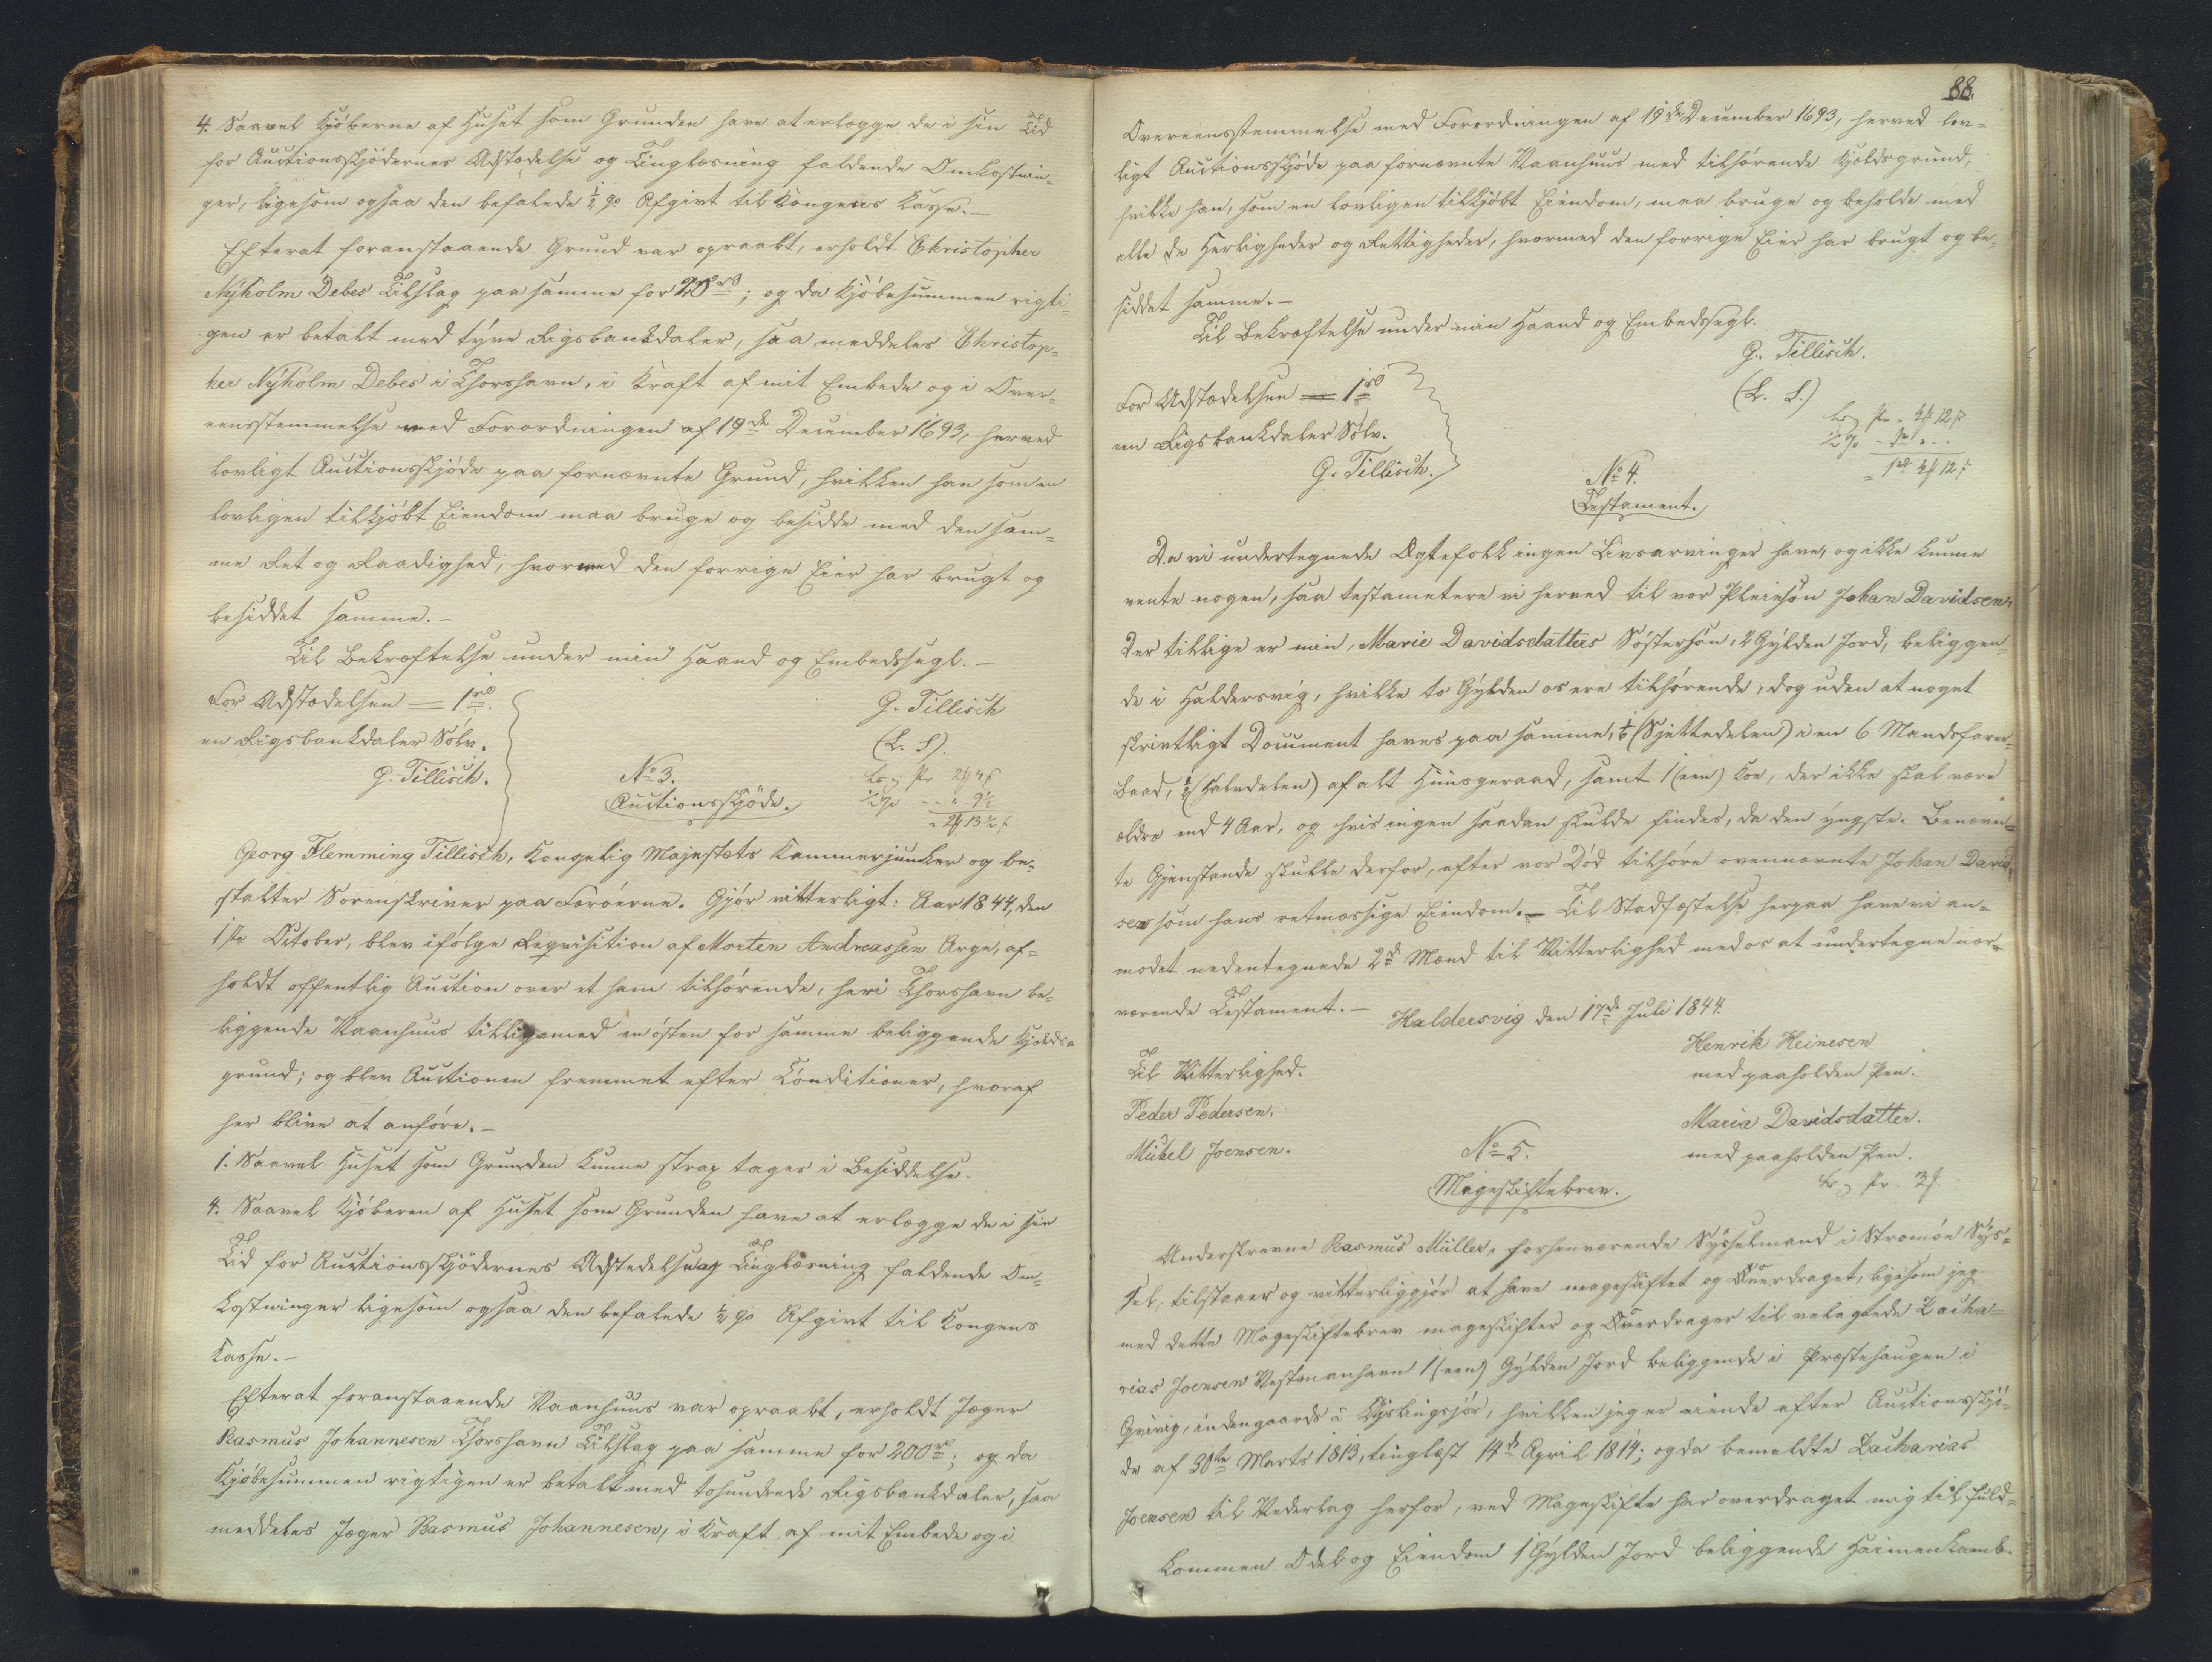 4. Saavel Kjöberne af Huset som Grunden have at erlægge de i sin Tid
for Auctionsskjödernes Udstædelse og Tinglæsning faldende Omkostnin-
ger, ligesom ogsaa den befalede ½ % Afgivt til Kongens Kasse.-
Efterat foranstaaende Grund var opraabt, erholdt Christopher
Nÿholm Debes Tilslag paa samme for 20 rd; og da Kjöbesummen rigti-
gen er betalt med tyve Rigsbankdaler, saa meddeles Christop-
her Nÿholm Debes i Thorshavn, i Kraft af mit Embede og i Over-
eensstemmelse med Forordningen af 19de December 1693, herved
lovligt Auctionsskjöde paa fornævnte Grund, hvilken han som en
lovligen tilkjöbt Eiendom maa bruge og besidde med den sam-
me Ret og Raadighed, hvormed den forrige Eier har brugt og
besiddet samme.-
Til Bekræftelse under min Haand og Embedssegl.-
For Udstædelsen = 1 rd.
en Rigsbankdaler Sölv.
G. Tillisch.
G. Tillisch
(L. S).
No 3.
Auctionsskjöde.
2 4
½ % 9½
2 13½
Georg Flemming Tillisch, Kongelig Majestæts Kammerjunker og be-
stalter Sorenskriver paa Færöerne. Gjör vitterligt: Aar 1844, den
1ste October, blev ifölge Reqvisition af Morten Andreassen Arge, af-
holdt offentlig Auction over et ham tilhörende, heri Thorshavn be-
liggende Vaanhuus tilligemed en östen for samme beliggende Kjolds-
grund; og blev Auctionen fremmet efter Conditioner, hvoraf
her blive at anföre.-
1. Saavel Huset som Grunden kunne strax tages i Besiddelse.
4. Saavel Kjöberen af Huset som Grunden have at erlægge de i sin
Tid for Auctionsskjödernes Udstedelse og Tinglæsning faldende Om-
kostninger ligesom ogsaa den befalede ½ % Afgivt til Kongens
Kasse.-
Efterat foranstaaende Vaanhuus var opraabt, erholdt Jæger
Rasmus Johannesen Thorshavn Tilslag paa samme for 200 rd; og da
Kjöbesummen rigtigen er betalt med tohundrede Rigsbankdaler, saa
meddeles Jæger Rasmus Johannesen, i Kraft af mit Embede og i
88.
Overeensstemmelse med Forordningen af 19de December 1693, herved lov-
ligt Auctionsskjöde paa fornævnte Vaanhuus med tilhörende Kjoldsgrund,
hvilke han, som en lovligen tilkjöbt Eiendom, maa bruge og beholde med
alle de Herligheder og Rettigheder, hvormed den forrige Eier har brugt og be-
siddet samme.-
Til Bekræftelse under min Haand og Embedssegl.
G. Tillisch.
(L. S.)
For Udstædelsen = 1 rd
en Rigsbankdaler Sölv.
G. Tillisch.
4 12
½ % 1
1 rd 4 12
No 4.
Testament.
Da vi undertegnede Ægtefolk ingen Livsarvinger have, og ikke kunne
vente nogen, saa testametere vi herved til vor Pleiesön Johan Davidsen,
der tillige er min, Marie Davidsdatters Söstersön, 2 Gÿlden Jord, beliggen-
de i Haldersvig, hvilke to Gÿlden os ere tilhörende, dog uden at noget
skrivtligt Document haves paa samme, 1/6 (Sjettedelen) i en 6 Mandsfarer-
Baad, ½ (Halvdelen) af alt Huusgeraad, samt 1 (een) Koe, der ikke skal være
ældre end 4 Aar, og hvis ingen saadan skulde findes, da den yngste. Benævn-
te Gjenstande skulle derfor, efter vor Död tilhöre ovennævnte Johan David-
sen som hans retmæssige Eiendom.- Til Stadfæstelse herpaa have vi an-
modet nedentegnede 2de Mænd til Vitterlighed med os at undertegne nær-
værende Testament.-
Haldersvig den 17de Juli 1844.
Til Vitterlighed.
Peder Pedersen.
Mikel Joensen.
Henrik Heinesen
med paaholden Pen.
Maria Davidsdatter.
med paaholden Pen.
No 5.
Mageskiftebrev.
Underskrevne Rasmus Müller, forhenværende Sÿsselmand i Stromöe Sÿs-
sel, tilstaaer og vitterliggjör at have mageskiftet og Overdraget, ligesom jeg
med dette Mageskiftebrev mageskifter og Overdrager til velagtede Zacha-
rias Joensen Vestmanhavn 1 (een) Gÿlden Jord beliggende i Præstehaugen i
Qvivig, indengaards á, hvilken jeg er eiende efter Auctionsskjö-
de af 30te Marts 1813, tinglæst 14de April 1814; og da bemeldte Zacharias
Joensen til Vederlag herfor, ved Mageskifte har overdraget mig til fuld-
kommen Odel og Eiendom 1 Gÿlden Jord beliggende